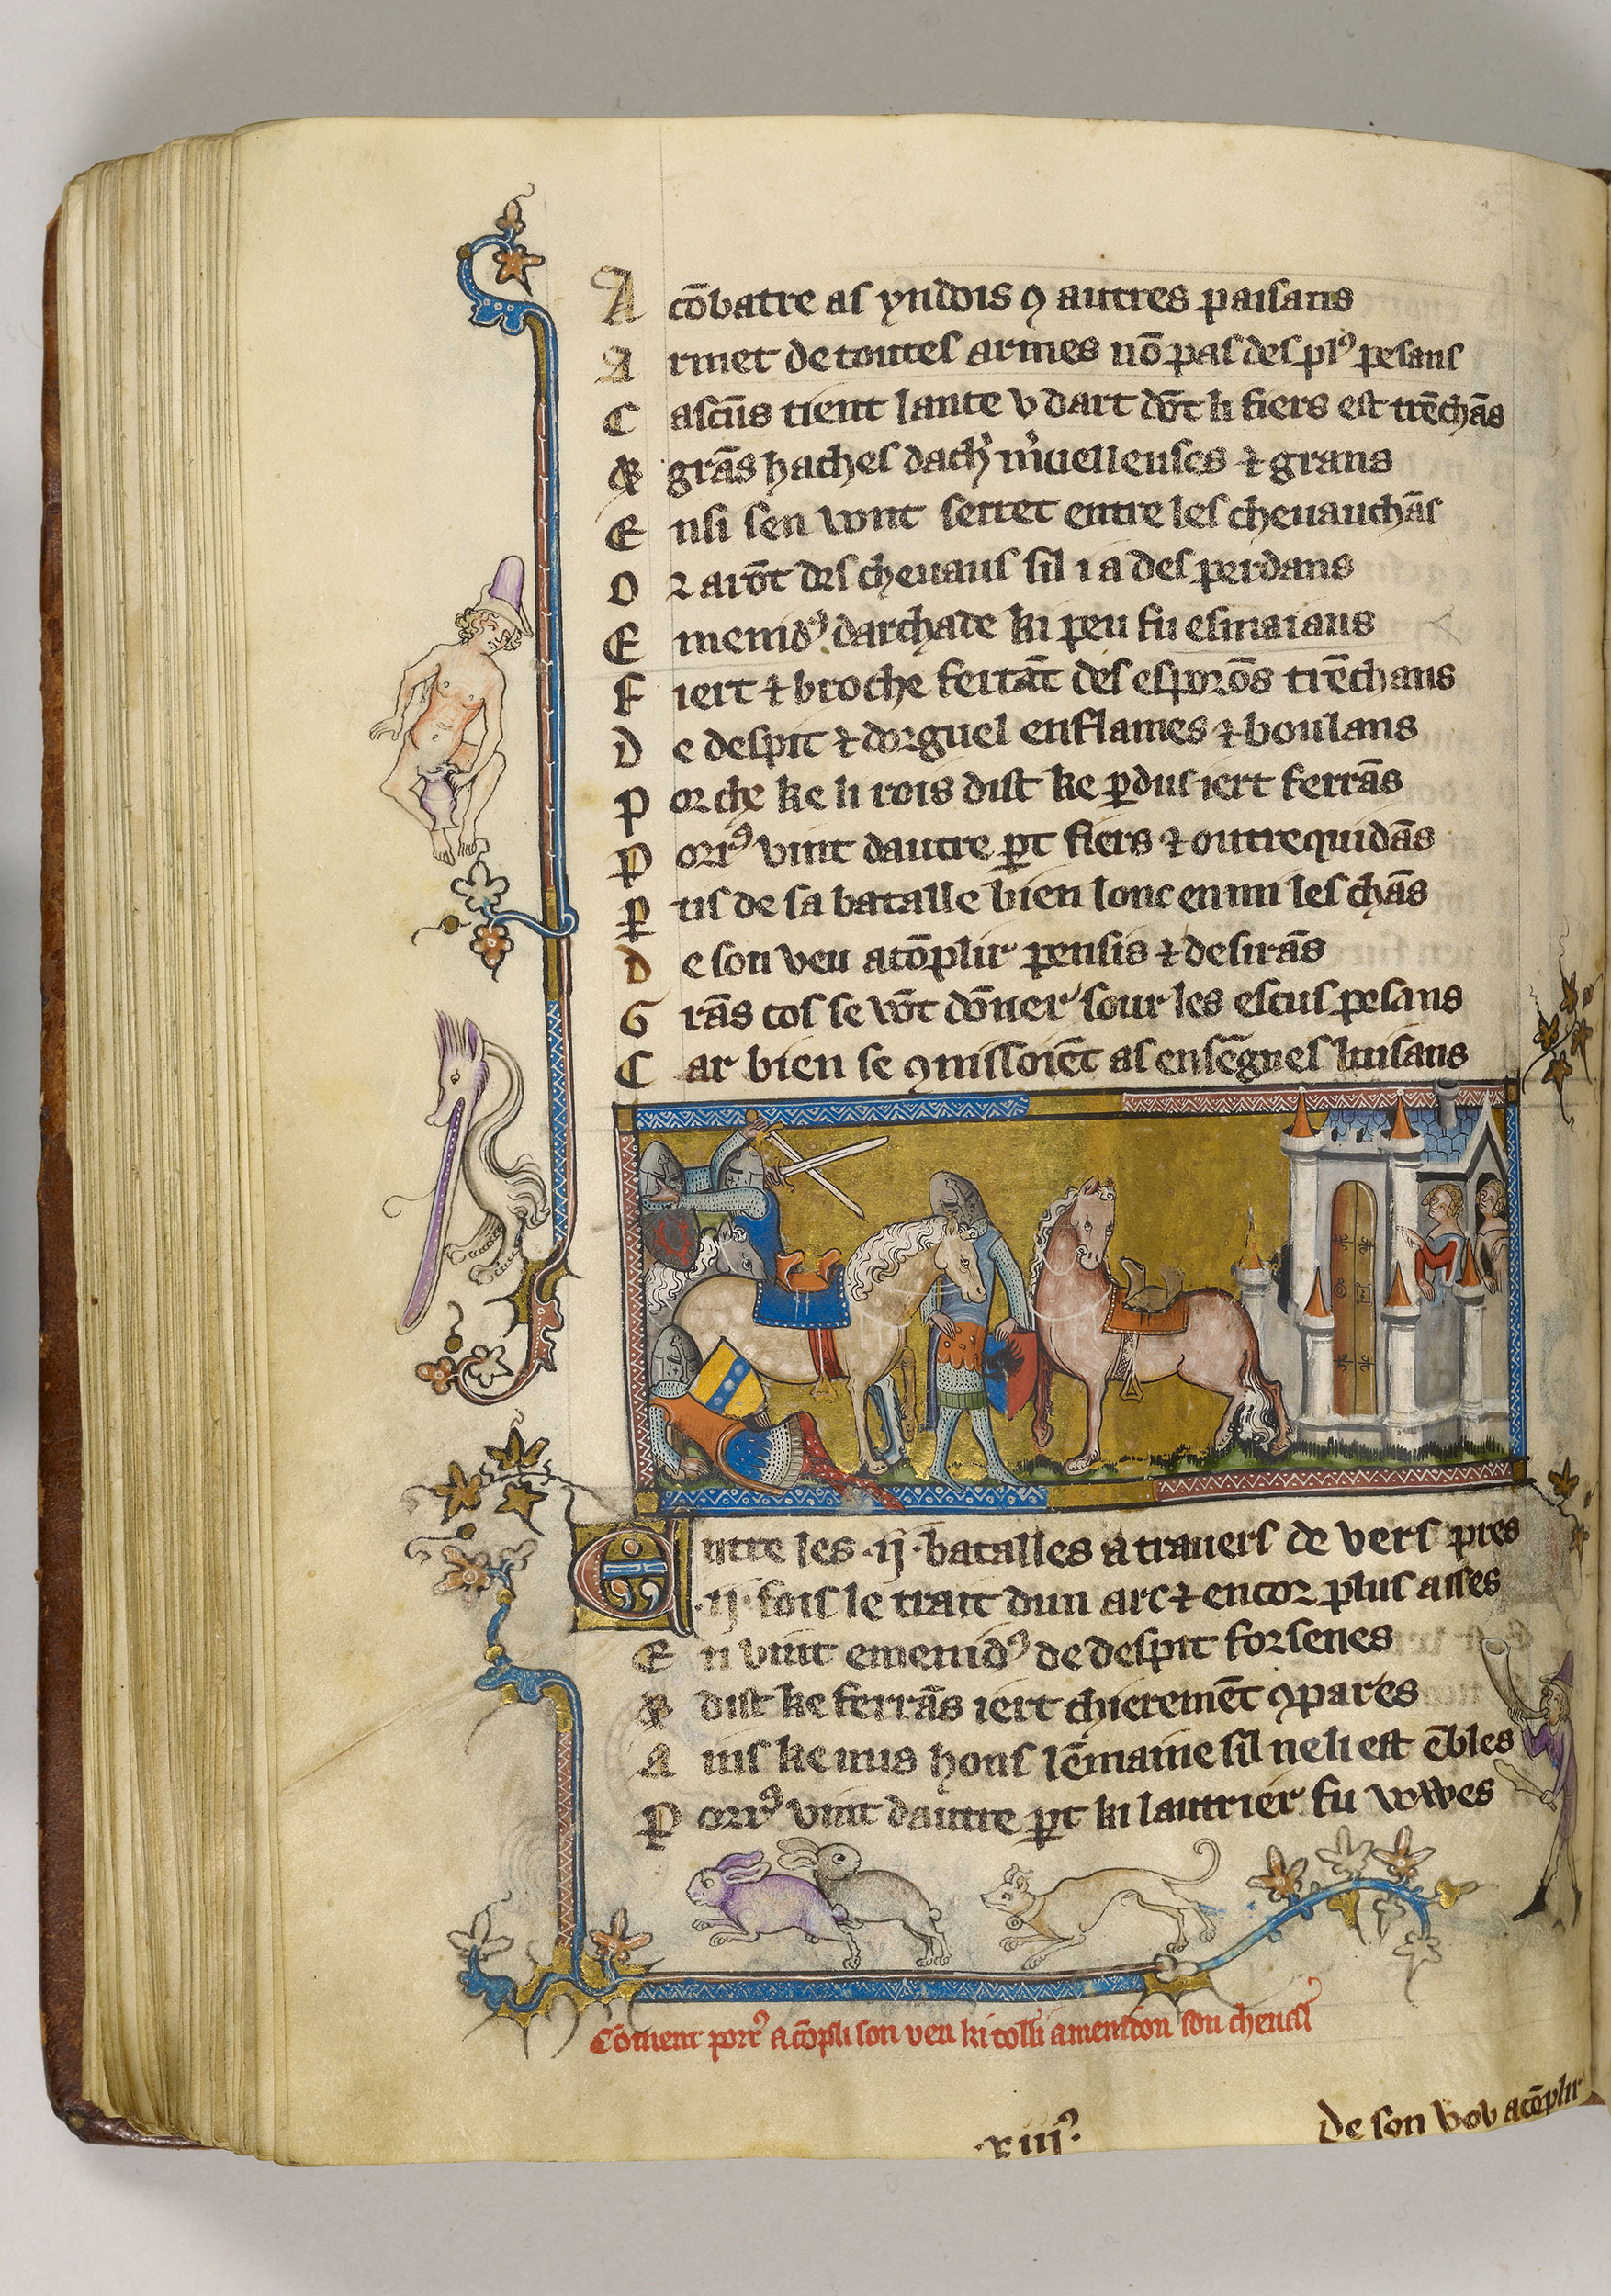 A cōbatre as yndois ꝯ autres paisans
A rmet de toutes armes nō pas des plꝰ pesans
C ascūs tient lance v dart dōt li fiers est trēchās
& grās haches dach' m'uelleuses ⁊ grans
E nsi sen vont serret entre les cheuauchās
O r arōt des cheuaus sil i a des perdans
E menidꝰ darchade ki peu fu esmaians
F iert ⁊ broche ferrāt des esporōs trēchans
D e despit ⁊ dorguel enflames ⁊ boulans
P or che ke li rois dist ke ꝑdus iert ferrās
P orrꝰ vint dautre ꝑt fiers ⁊ outrequidās
P tis de sa batalle bien lonc enmi les chās
D e son veu acōplir pensis ⁊ desirās
G rās cos se vōt dōner sour les escus pesans
C ar bien se ꝯnissoiēt as ensēgnes luisans
E ntre les .ij. batalles a trauers de vers pres
.ij. fois le trait dun arc ⁊ encor plus asses
E n vint emenidꝰ de despit forsenes
& dist ke ferrās iert chieremēt ꝯpares
A ins ke nus hons lēmaine sil ne li est ēbles
P orrꝰ vint dautre ꝑt ki lautrier fu vowes
Cōment porrꝰ acōpli son veu ki tolli amenidon son cheual
.xiijꝰ.
de son vov acōplir